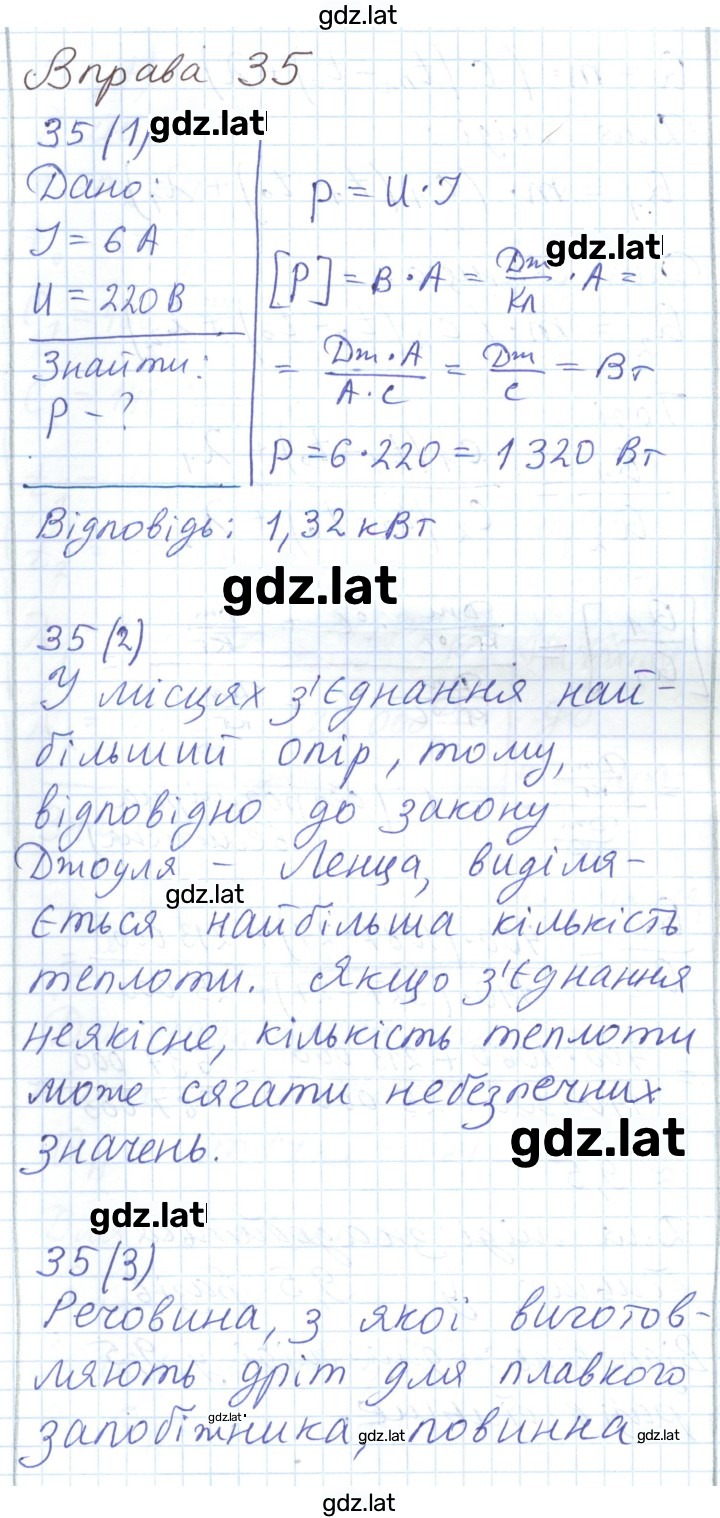 gdz.lat
Вправа 35
35(1) gdz.lat
Дано:
I = 6 А
U = 220 В
Знайти:
P - ?
P = U · I
gdz.lat
[P] = В · А = Дж/Кл · А =
= Дж·А/А·с = Дж/с = Вт
P = 6·220 = 1320 Вт
Відповідь: 1,32 кВт
gdz.lat
35(2)
У місцях з'єднання най-
більший опір, тому,
відповідно до закону
Джоуля – Ленца, виділя-
gdz.lat
ється найбільша кількість
теплоти. Якщо з'єднання
неякісне, кількість теплоти
може сягати небезпечних
значень.
gdz.lat
gdz.lat
35(3)
Речовина, з якої виготов-
ляють дріт для плавкого
gdz.lat
запобіжника, gdz.lat повинна gdz.lat
gdz.lat